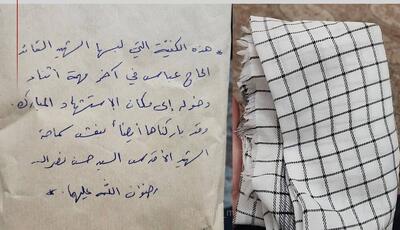 * هذه الكفيّة التي لبسها الشهيد القائد
الحاج عباس في آخر مهمة أثناء
دخوله إلى مكان الاستشهاد المبارك.
وقد باركناها أيضاً بنعش سماحة
الشهيد الأقدس السيد حسن نصرالله
رضوان الله عليهما. *